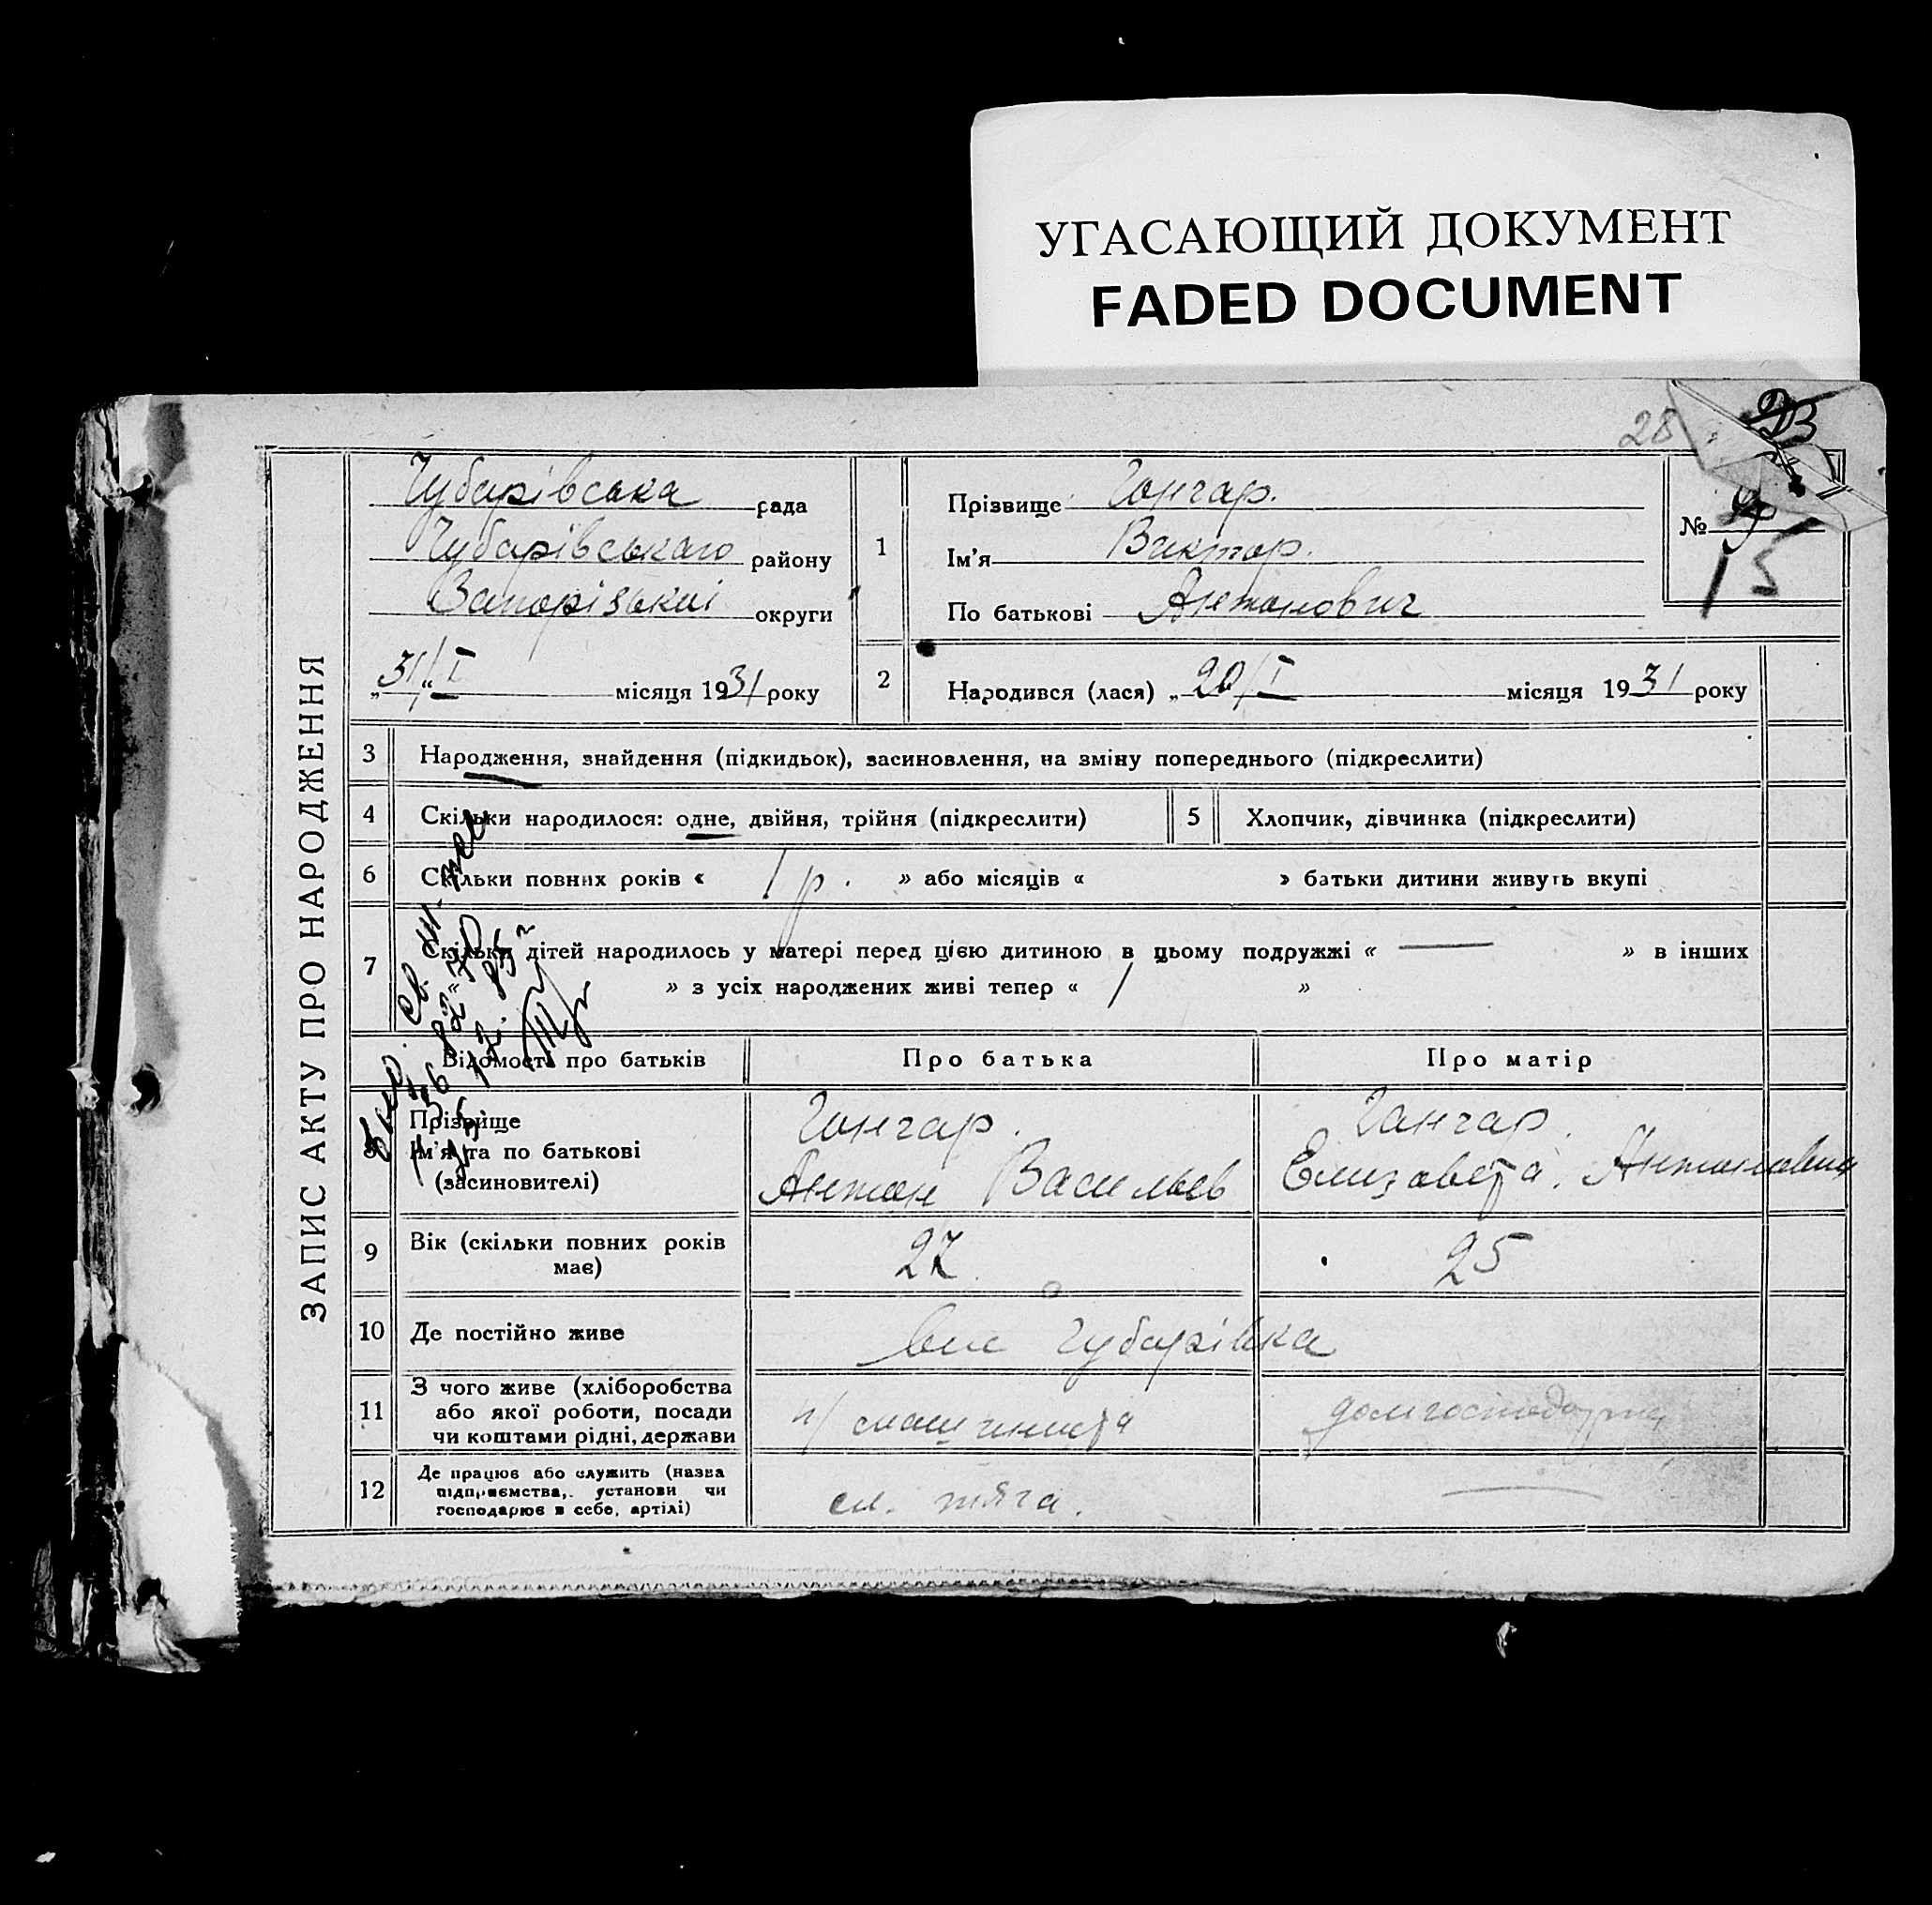 УГАСАЮЩИЙ ДОКУМЕНТ
FADED DOCUMENT
28
ЗАПИС АКТУ ПРО НАРОДЖЕННЯ
Чубарівська рада
Чубарівського району
Запорізької округи
„31/„ I місяця 1931 року
1
Прізвище Гончар.
Ім’я Виктор.
По батькові Антонович
№
15
2
Народився (лася) „20/I місяця 1931 року
3 Народження, знайдення (підкидьок), засиновлення, на зміну попереднього (підкреслити)
4 Скільки народилося: одне, двійня, трійня (підкреслити)
5 Хлопчик, дівчинка (підкреслити)
6 Скільки повних років « 1 р. » або місяців « » батьки дитини живуть вкупі
7 Скільки дітей народилось у матері перед цією дитиною в цьому подружжі « — » в інших
» з усіх народжених живі тепер « 1 »
Відомості про батьків Про батька Про матір
8 Прізвище
Ім’я та по батькові
(засиновителі)
Гончар.
Антон Васильев
Ганчар.
Елизавета. Антоновна
9 Вік (скільки повних років має) 27 25
10 Де постійно живе Чубарівка
11 З чого живе (хліборобства
або якої роботи, посади
чи коштами рідні, держави
п/машиниста
домгосподарка
12 Де працює або служить (назва
підприємства, установи чи
господарює в себе, артілі)
сл. тяга.
—